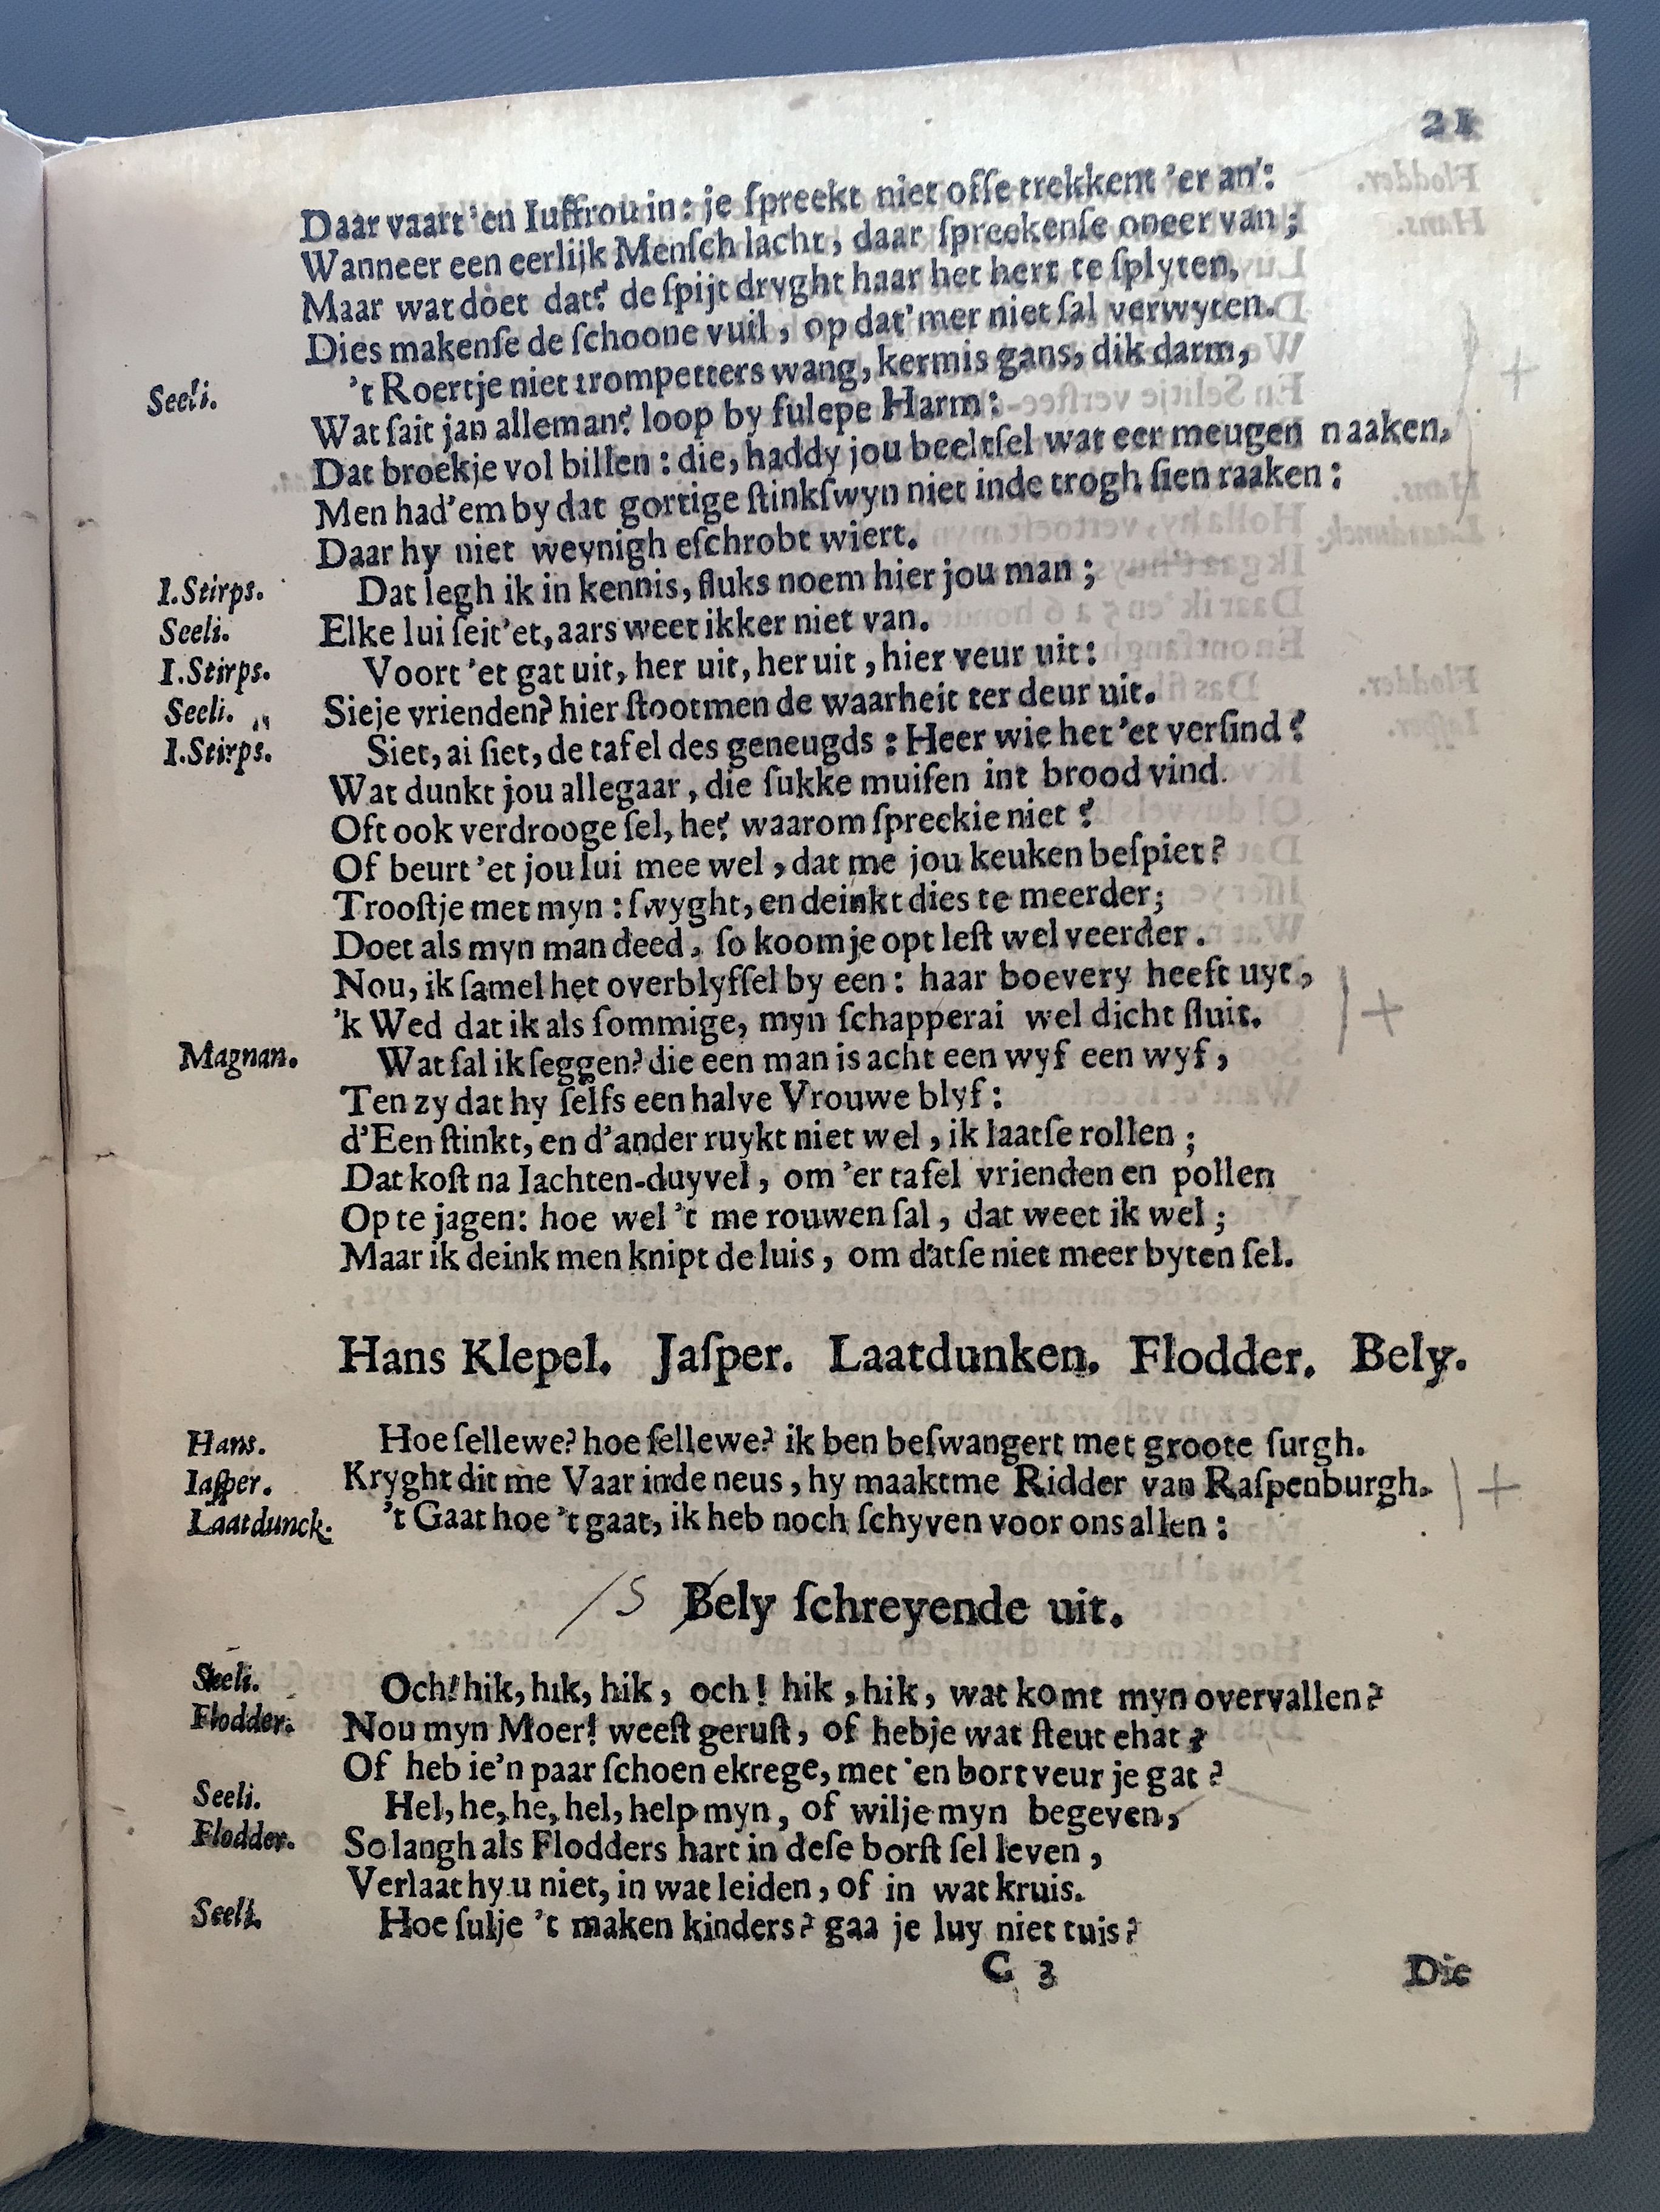 21
Daar vaart 'en Iuffrou in: je ſpreekt niet offe trekkent 'er an':
Wanneer een eerlijk Menſch lacht, daar ſpreekenſe oneer van;
Maar wat doet dat? de ſpijt dryght haar het hert te ſplyten,
Dies makenſe de ſchoone vuil, op dat'mer niet ſal verwyten.
Seeli. 't Roertje niet trompetters wang, kermis gans, dik darm,
Wat ſait jan alleman? loop by fulepe Harm:
Dat broekje vol billen: die, haddy jou beeltſel wat eer meugen naaken,
Men had'em by dat gortige ſtinkſwyn niet inde trogh ſien raaken:
Daar hy niet weynigh eſchrobt wiert.
I.Stirps. Dat legh ik in kennis, fluks noem hier jou man;
Seeli. Elke lui ſeit'et, aars weet ikker niet van.
I.Stirps. Voort 'et gat uit, her uit, her uit, hier veur uit:
Seeli. Sieje vrienden? hier ſtootmen de waarheit ter deur uit.
I.Stirps. Siet, ai ſiet, de tafel des geneugds: Heer wie het 'et verſind?
Wat dunkt jou allegaar, die ſukke muiſen int brood vind.
Oft ook verdrooge ſel, he? waarom ſpreekie niet?
Of beurt 'et jou lui mee wel, dat me jou keuken beſpiet?
Trooſtje met myn: ſwyght, en deinkt dies te meerder;
Doet als myn man deed, ſo koomje opt leſt wel veerder.
Nou, ik ſamel het overblyfſel by een: haar boevery heeft uyt,
'k Wed dat ik als ſommige, myn ſchapperai wel dicht ſluit.
Magnan. Wat ſal ik ſeggen? die een man is acht een wyf een wyf,
Ten zy dat hy ſelfs een halve Vrouwe blyf:
d'Een ſtinkt, en d'ander ruykt niet wel, ik laatſe rollen;
Dat koſt na Iachten-duyvel, om 'er tafel vrienden en pollen
Op te jagen: hoe wel 't me rouwen ſal, dat weet ik wel;
Maar ik deink men knipt de luis, om datſe niet meer byten ſel.
Hans Klepel. Jaſper. Laatdunken. Flodder. Bely.
Hans. Hoe ſellewe? hoe ſellewe? ik ben beſwangert met groote ſurgh.
Iaſper. Kryght dit me Vaar inde neus, hy maaktme Ridder van Raſpenburgh.
Laatdunck. 't Gaat hoe 't gaat, ik heb noch ſchyven voor ons allen:
/S Bely ſchreyende uit.
Seeli. Och! hik, hik, hik, och! hik, hik, wat komt myn overvallen?
Flodder. Nou myn Moer! weeſt geruſt, of hebje wat ſteut ehat?
Of heb ie'n paar ſchoen ekrege, met 'en bort veur je gat?
Seeli. Hel, he, he, hel, help myn, of wilje myn begeven,
Flodder. So langh als Flodders hart in deſe borſt ſel leven,
Verlaat hy u niet, in wat leiden, of in wat kruis.
Seeli. Hoe ſulje 't maken kinders? gaa je luy niet tuis?
C 3 Die